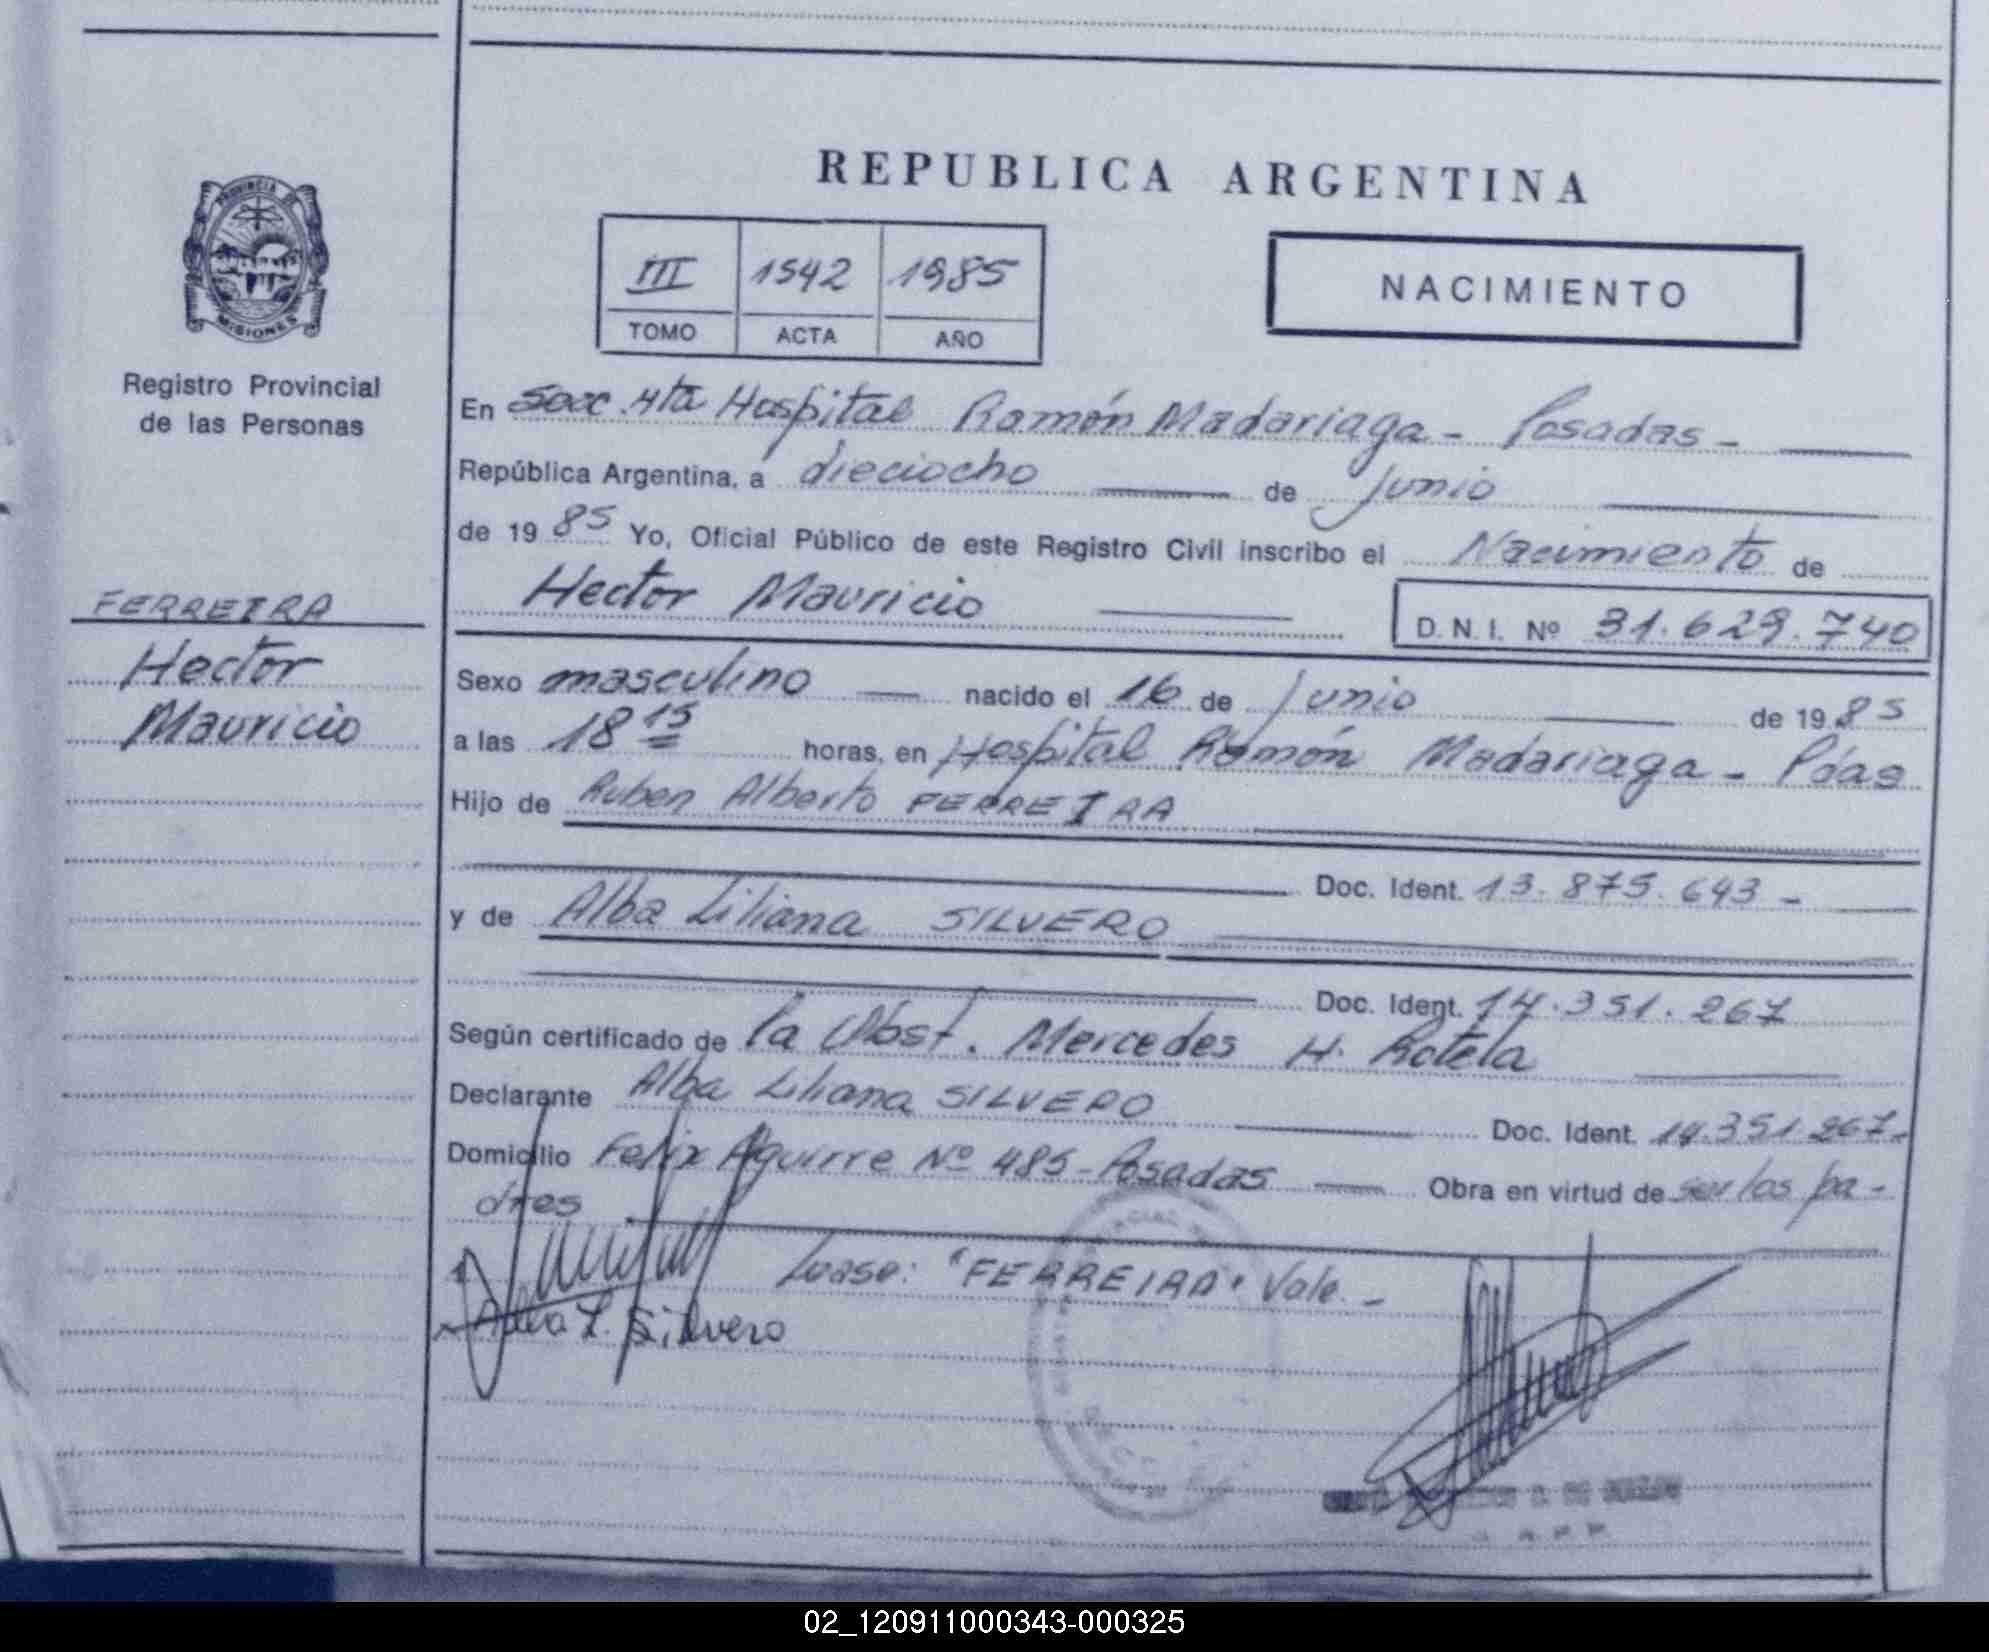 REPUBLICA ARGENTINA
PROVINCIA DE
MISIONES
Registro Provincial
de las Personas
III 1542 1985
TOMO ACTA AÑO
NACIMIENTO
En Secc. 4ta Hospital Ramón Madariaga - Posadas -
República Argentina, a dieciocho de junio
de 19 85 Yo, Oficial Público de este Registro Civil inscribo el Nacimiento de
Hector Mauricio D.N.I. Nº 31.629.740
FERREIRA
Hector
Mauricio
Sexo masculino nacido el 16 de junio de 19 85
a las 18 15 horas, en Hospital Ramón Madariaga - Pdas
Hijo de Ruben Alberto FERREIRA
Doc. Ident. 13.875.643 -
y de Alba Liliana SILVERO
Doc. Ident. 14.351.267
Según certificado de la Obst. Mercedes H. Rotela
Declarante Alba Liliana SILVERO Doc. Ident. 14.351.267-
Domicilio Felix Aguirre Nº 485 - Posadas Obra en virtud de ser los pa-
dres
Lease: "FERREIRA" Vale. -
Alba L. Silvero
02_120911000343-000325